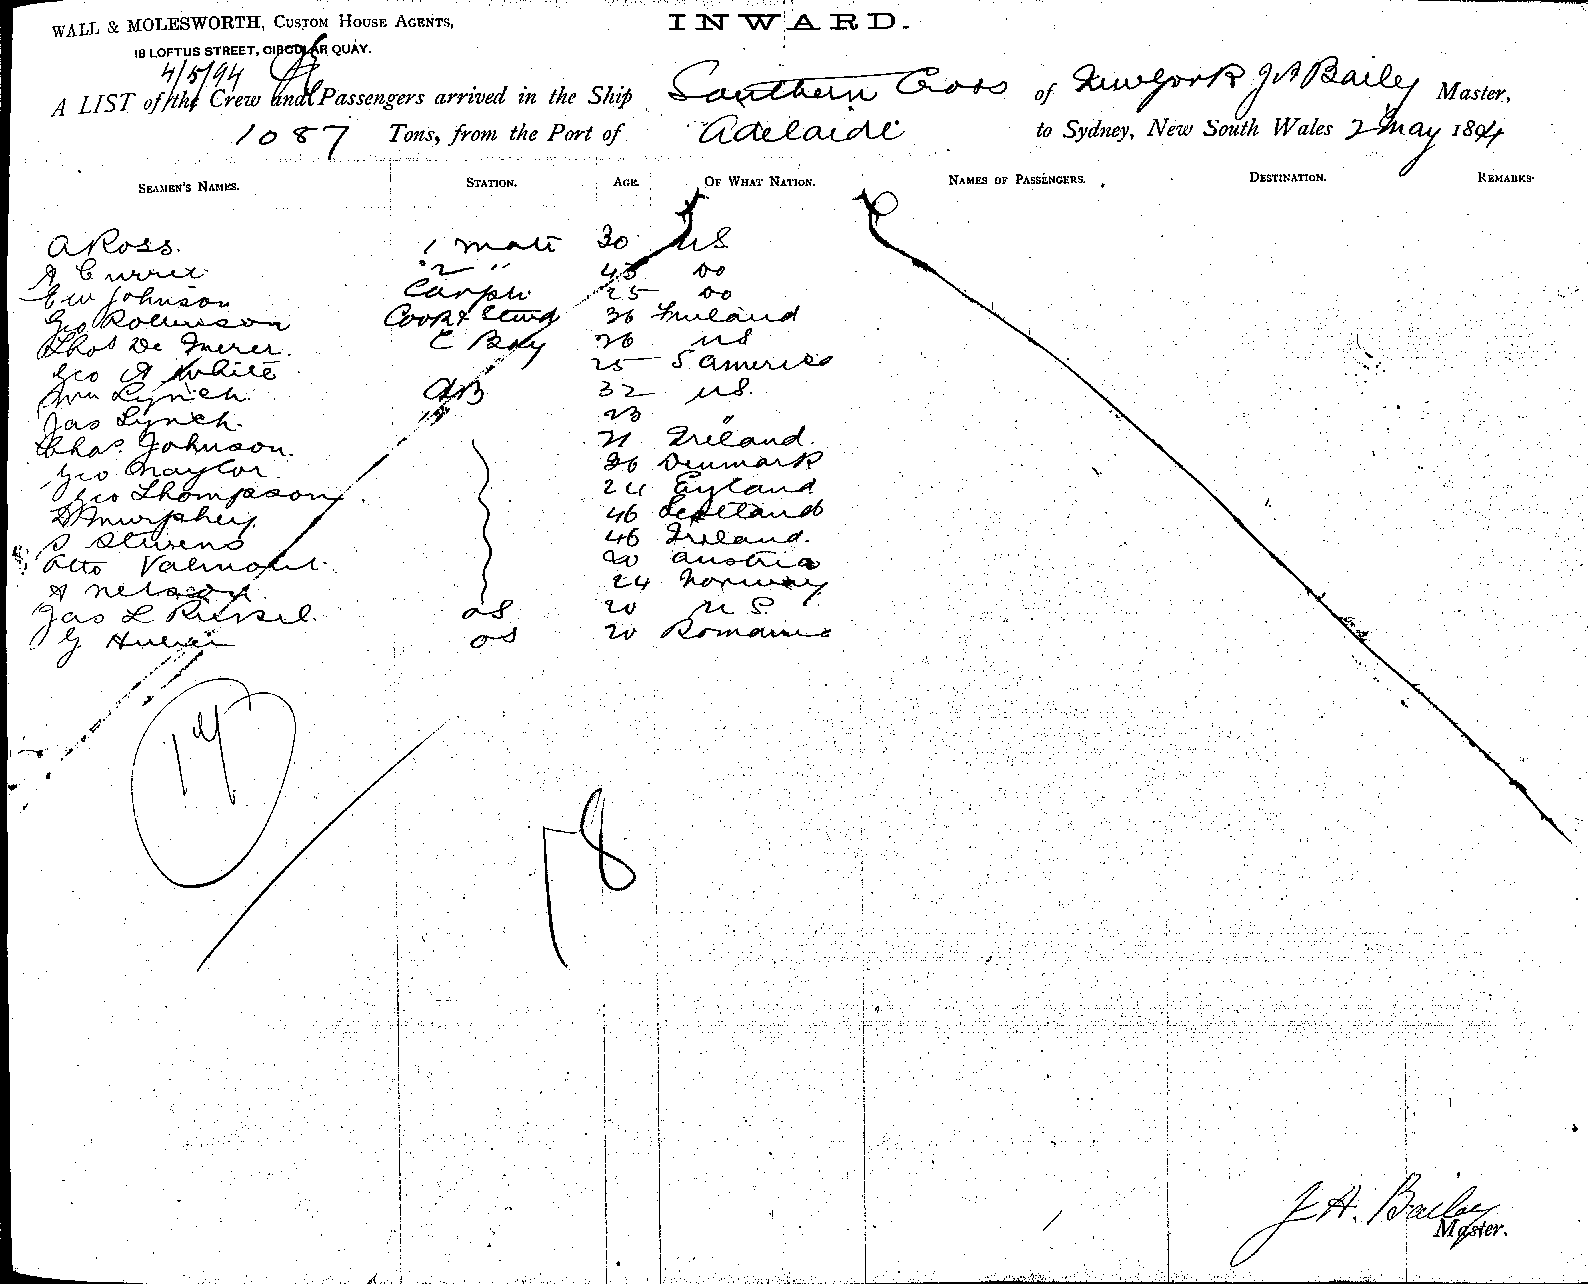 WALL & MOLESWORTH, CUSTOM HOUSE AGENTS,
INWARD.
18 LOFTUS STREET, CIRCULAR QUAY.
4/5/94
A LIST of the Crew and Passengers arrived in the Ship Southern Cross of New York J A Bailey Master,
1087 Tons, from the Port of Adelaide to Sydney, New South Wales 2 May 1894
SEAMEN'S NAMES. STATION. AGE. OF WHAT NATION. NAMES OF PASSENGERS. DESTINATION. REMARKS.
A Ross. 1 mate 30 US
A Currie 2 " 45 do
E W Johnson Carptr 25 do
Geo Robinson Cook & Stwd 36
Thos De C Boy 26 US
Geo A White 25 S America
Wm Lynch AB 32 US.
Jas Lynch. 23 "
Chas. Johnson. 21 Ireland.
Geo Naylor 26 Denmark
Geo Thompson. 24 England
D Murphey. 46 Scotland
S Stevens 46 Ireland.
Otto Valmont. 20 Austria
A Nelson 24 Norway
Jas L Russel. OS 20 U S.
G OS 20 Romania
17
18
J. A. Bailey
Master.